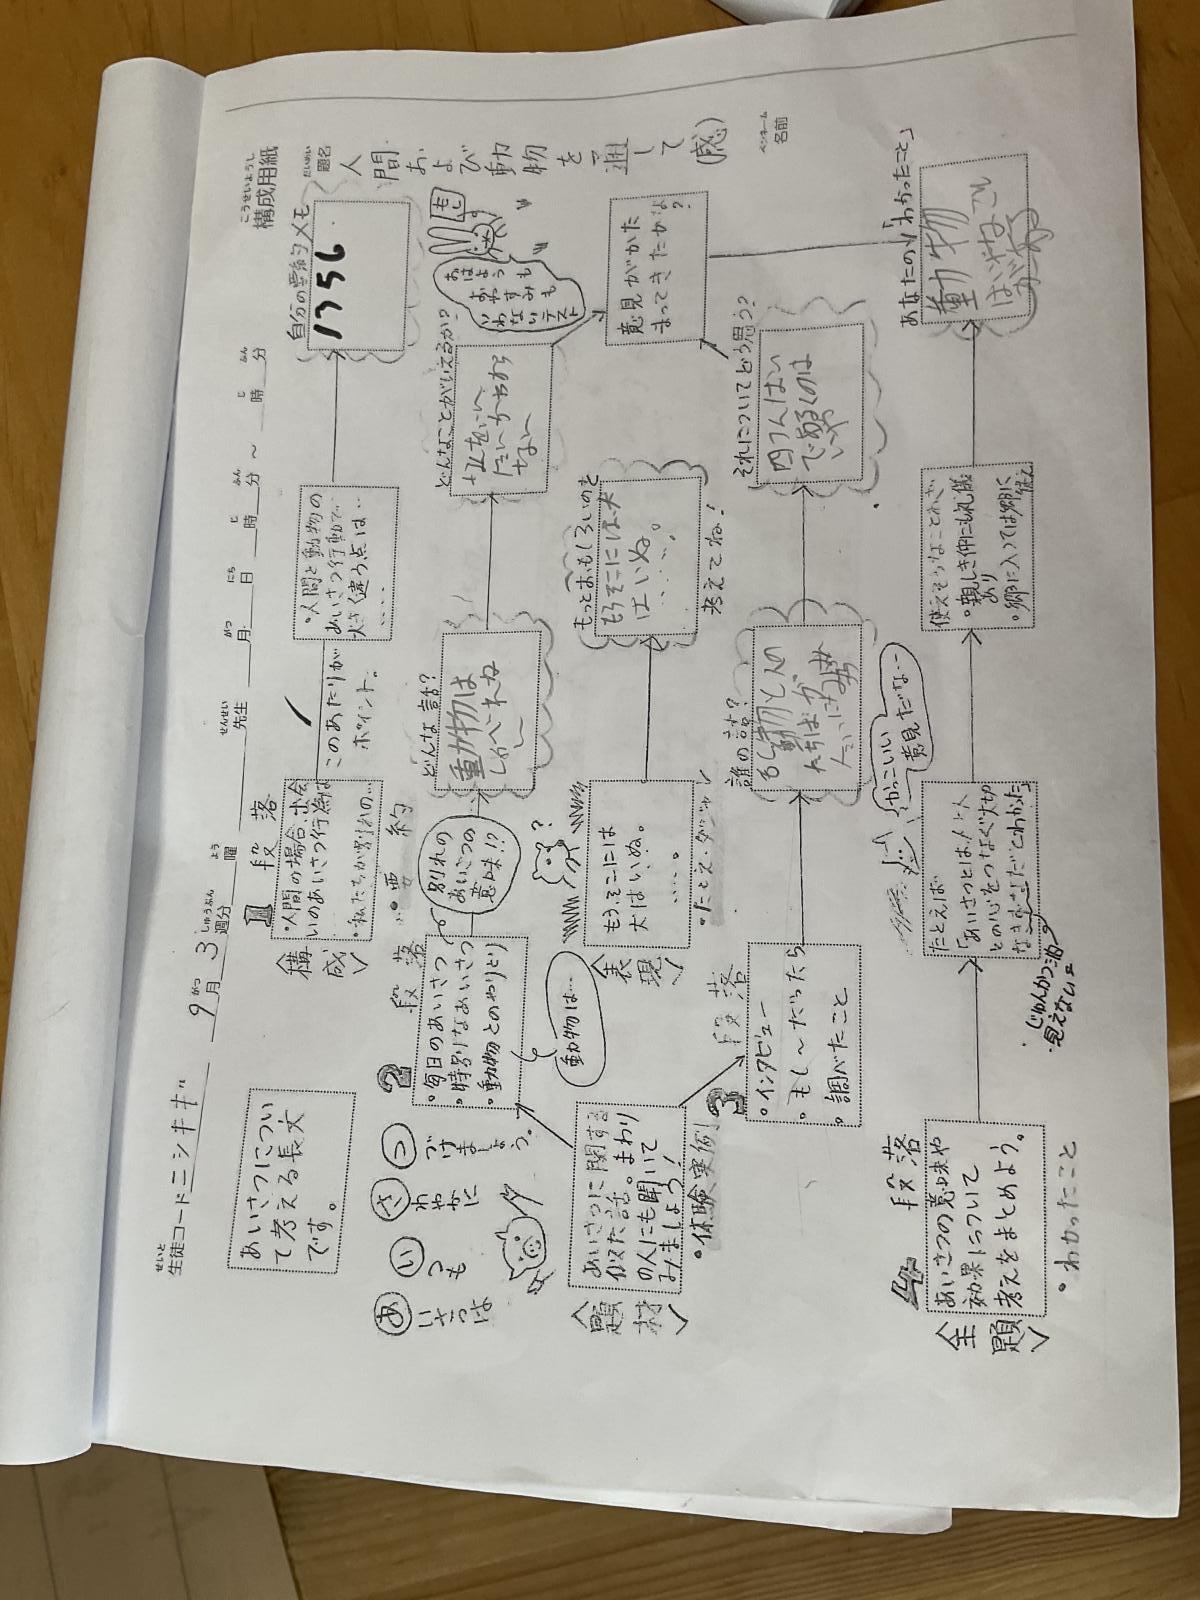 構成用紙
こうせいようし
生徒コード ニシキギ
せいと
9月3週分
がつ
しゅうぶん
曜
よう
先生
せんせい
月
がつ
日
にち
時
じ
分
ふん
～
時
じ
分
ふん
題名
だいめい
人間および動物を通して(感)
ペンネーム
名前
あいさつについ
て考える長文
です。
1段落
〈構成〉
・人間の場合、出会
いのあいさつ行為は
・私たちが別れの…
このあたりが
ポイント。
・人間と動物の
あいさつ行動で
大きく違う点は…
……
自分の要約メモ
1756
あいさつは
いつも
さわやかに
つづけましょう。
2段落
要約
・毎日のあいさつ
・特別なあいさつ
・動物とのやりとり
別れの
あいさつの
意味!?
動物は…
どんな話?
動物は
しゃべれね
～
どんなことがいえるか?
もし
おはようも
おやすみも
いわないテスト
〈題材〉
あいさつに関する
似た話。まわり
の人にも聞いて
みましょう!
・体験実例
〈表現〉
もうそこには
犬はいぬ。
……。
・たとえ・ダジャレ
?
もっとおもしろいのを
もうそこには犬
はいぬ。
……。
考えてね!
意見がかた
まってきたかな
?
3段落
・インタビュー
・もし～だったら
・調べたこと
誰の話?
それについてどう思う?
4段落
〈主題〉
あいさつの意味や
効果について
考えをまとめよう。
・わかったこと
たとえば
「あいさつとは人と人
との心をつなぐ大切
なきずなだとわかった」
・じゅんかつ油
・見えない
かっこいい
意見だな…
使えそうなことわざ
・親しき仲にも礼儀
あり
・郷に入っては郷に
従え
あなたの「わかったこと」
動物